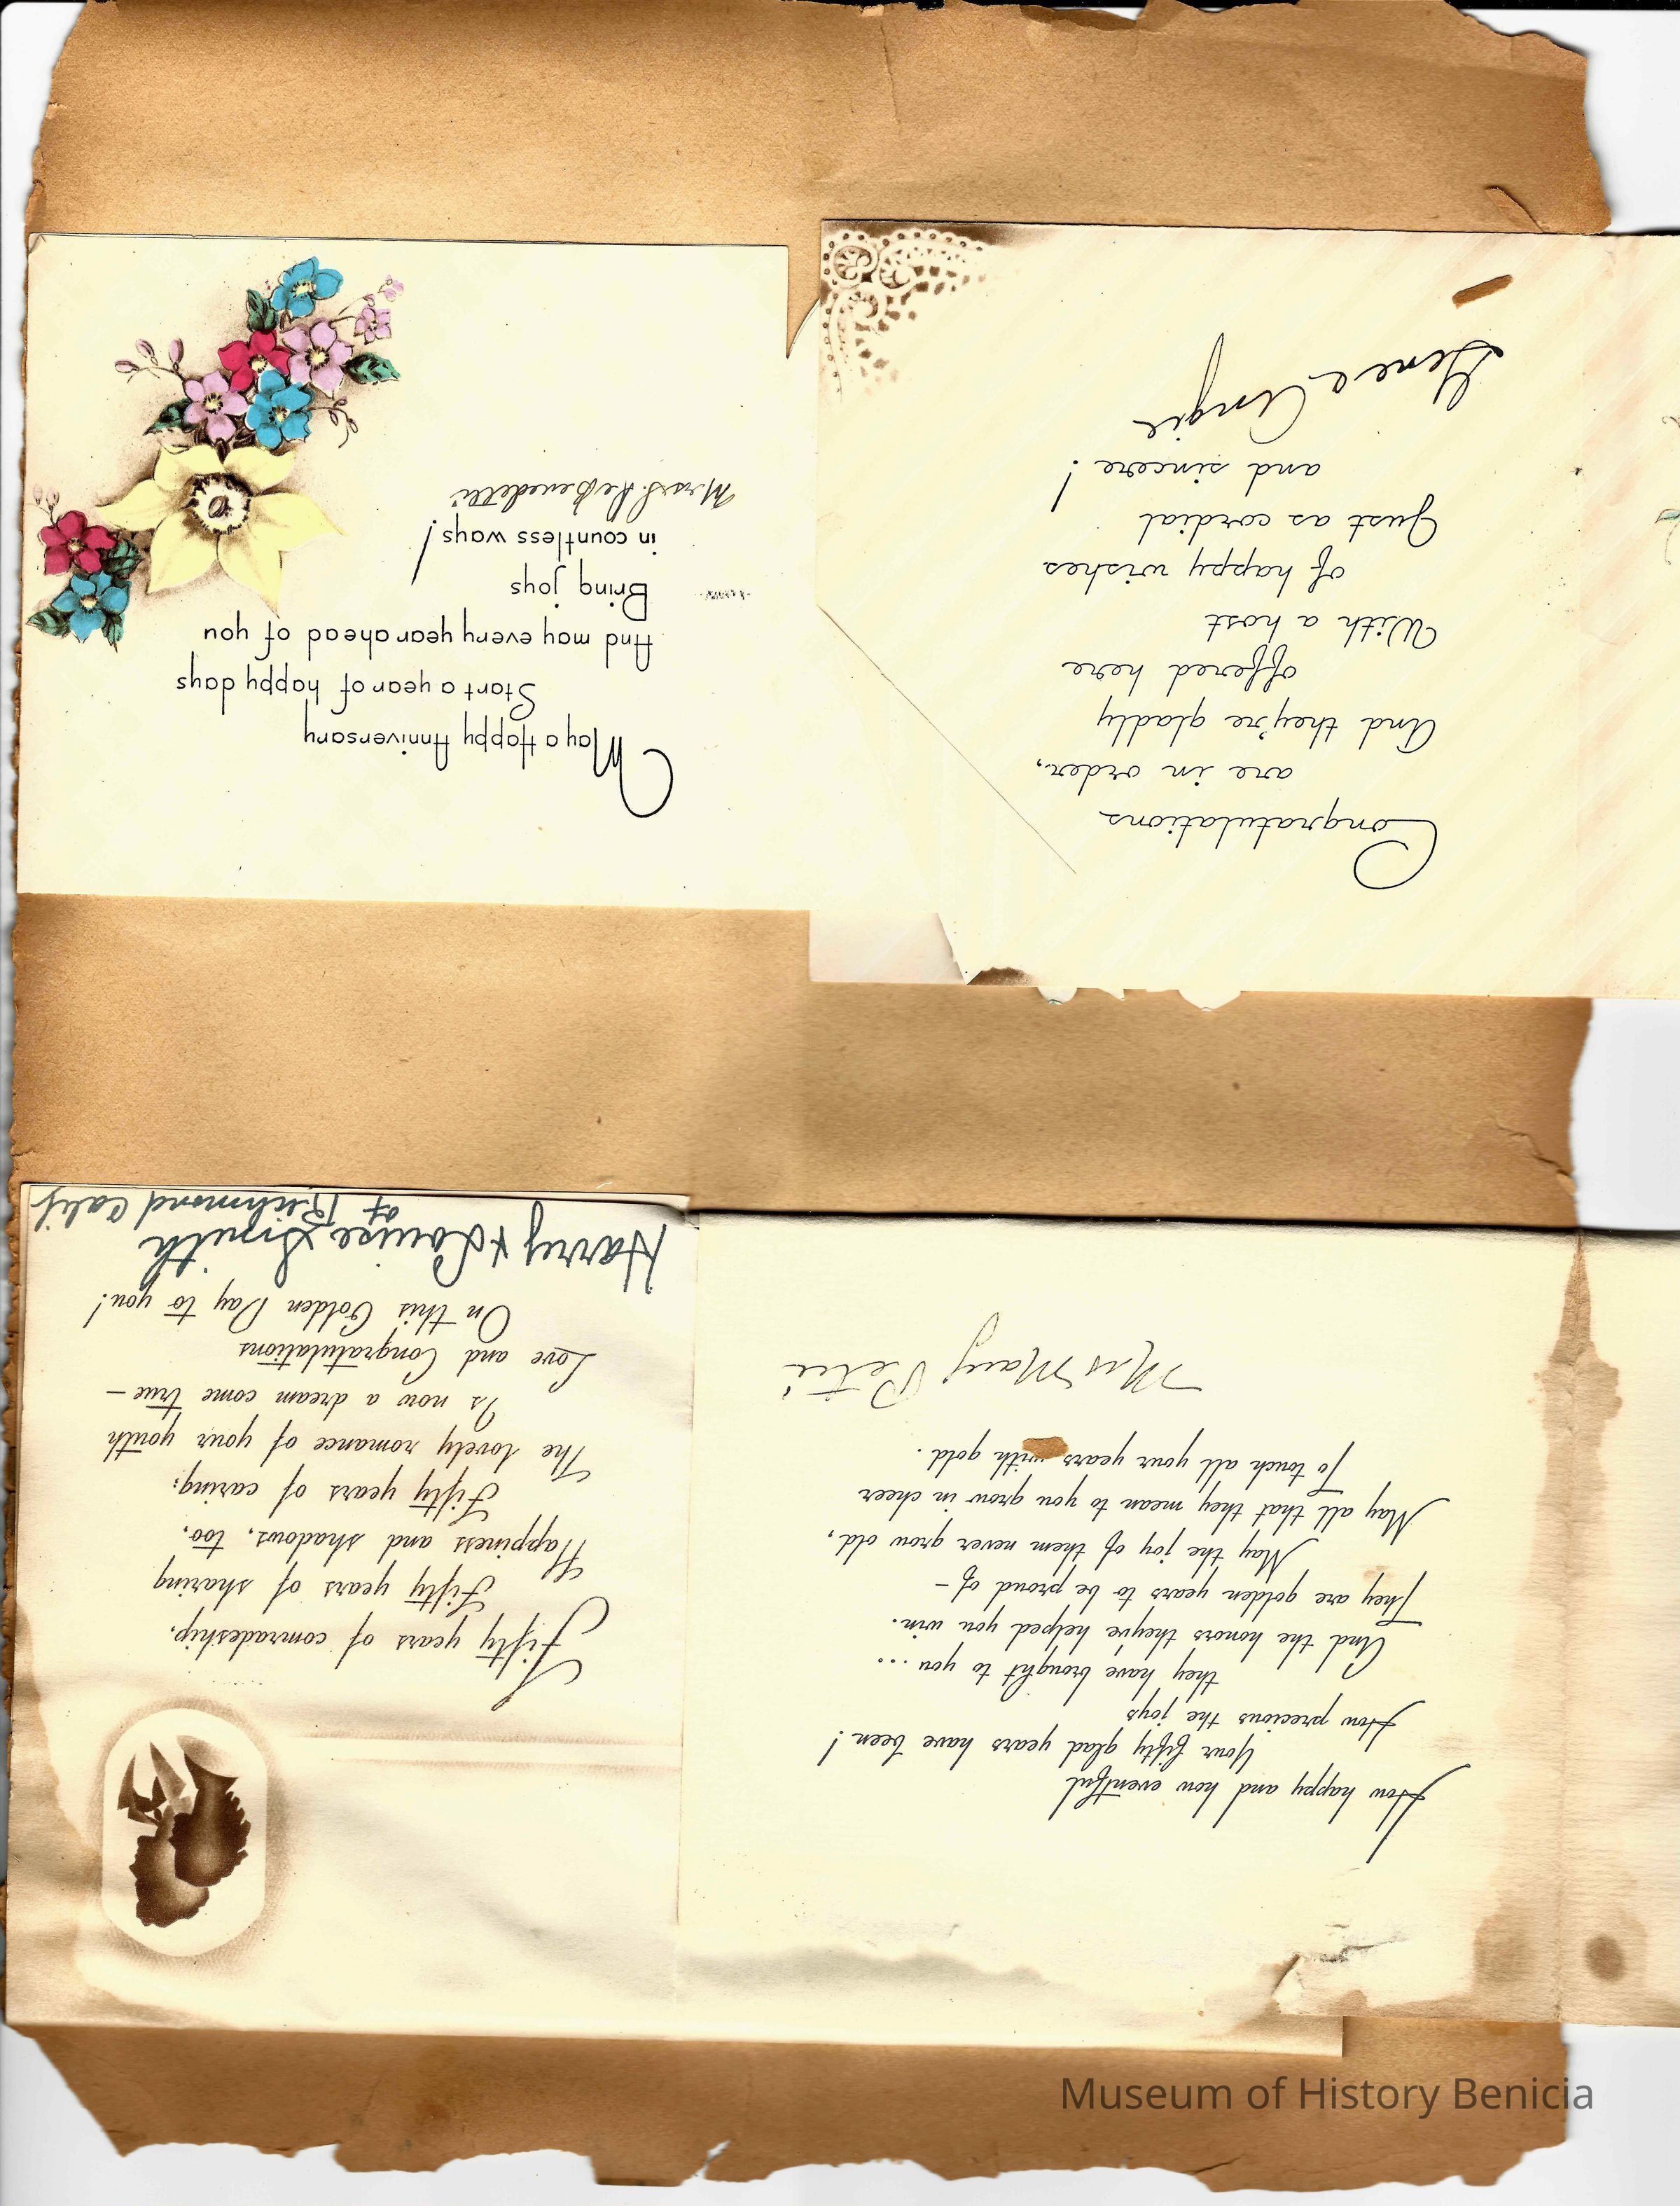 How happy and how eventful
Your fifty glad years have been!
How precious the joys
they have brought to you...
And the honors they've helped you win.
They are golden years to be proud of –
May the joy of them never grow old,
May all that they mean to you grow in cheer
To touch all your years with gold.
Mrs Mary
Fifty years of comradeship,
Fifty years of sharing
Happiness and shadows, too,
Fifty years of caring;
The lovely romance of your youth
Is now a dream come true –
Love and Congratulations
On this Golden Day to you!
Harry & Louise Smith
of Richmond Calif
Congratulations
are in order,
And they're gladly
offered here
With a host
of happy wishes
Just as cordial
and sincere!
Gene & Angie
May a Happy Anniversary
Start a year of happy days
And may every year ahead of you
Bring joys
in countless ways!
Mrs S. DeBenedetti
Museum of History Benicia